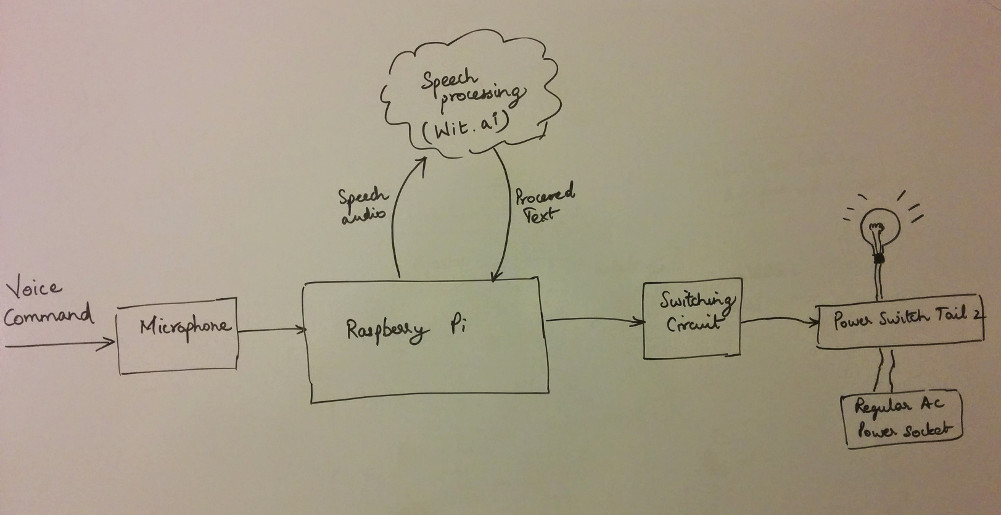 Speech
processing
(Wit.ai)
Speech
audio
Procered
Text
Voice
Command
Microphone
Raspberry Pi
Switching
Circuit
Power Switch Tail 2
Regular AC
Power Socket